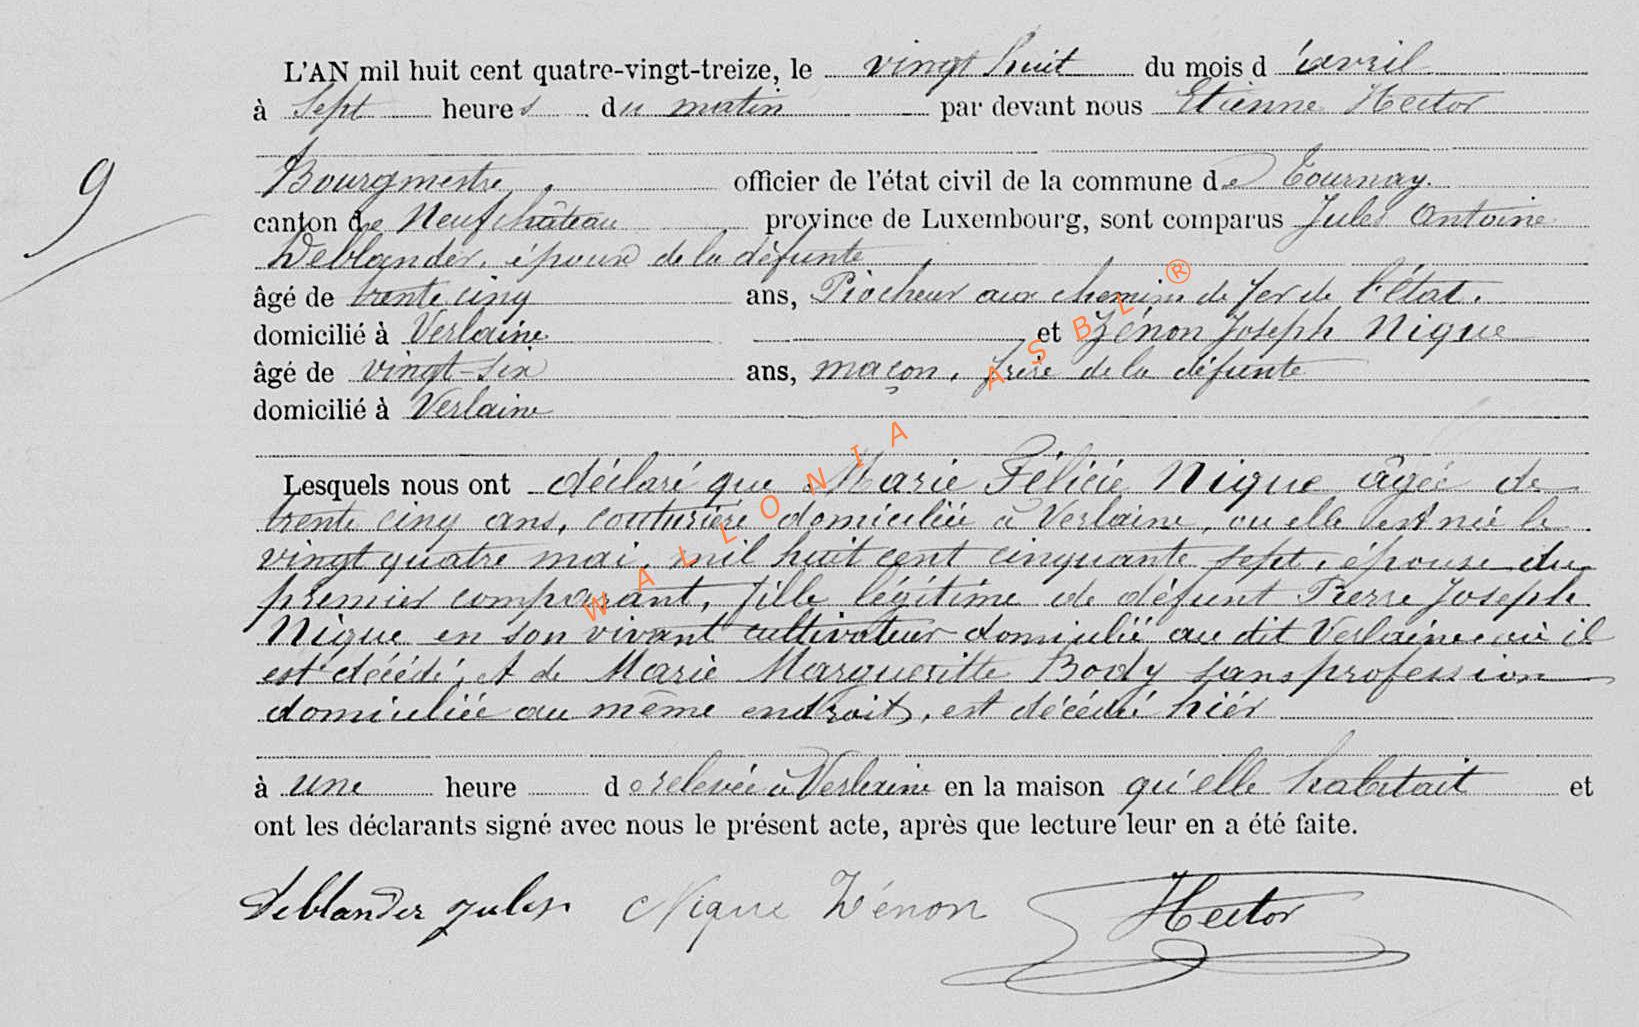 L'AN mil huit cent quatre-vingt-treize, le vingt huit du mois d'avril
à sept heures du matin par devant nous Etienne Hector
9
Bourgmestre, officier de l'état civil de la commune de Tournay.
canton de Neufchâteau province de Luxembourg, sont comparus Jules Antoine
Deblander, époux de la défunte
âgé de trente cinq ans, Piocheur aux chemins de fer de l'état.
domicilié à Verlaine et Zénon Joseph Nique
âgé de vingt-six ans, maçon, frère de la défunte
domicilié à Verlaine
WALLONIA ASBL ®
Lesquels nous ont déclaré que Marie Félicie Nique âgée de
trente cinq ans, couturière domiciliée à Verlaine, ou elle est née le
vingt quatre mai, mil huit cent cinquante sept, épouse du
premier comparant, fille légitime de défunt Pierre Joseph
Nique en son vivant cultivateur domicilié au dit Verlaine où il
est décédé, et de Marie Margueritte Body sans profession
domiciliée au même endroit, est décédé hier
à une heure de relevée à Verlaine en la maison qu'elle habitait et
ont les déclarants signé avec nous le présent acte, après que lecture leur en a été faite.
Deblander Jules Nique Zénon Hector